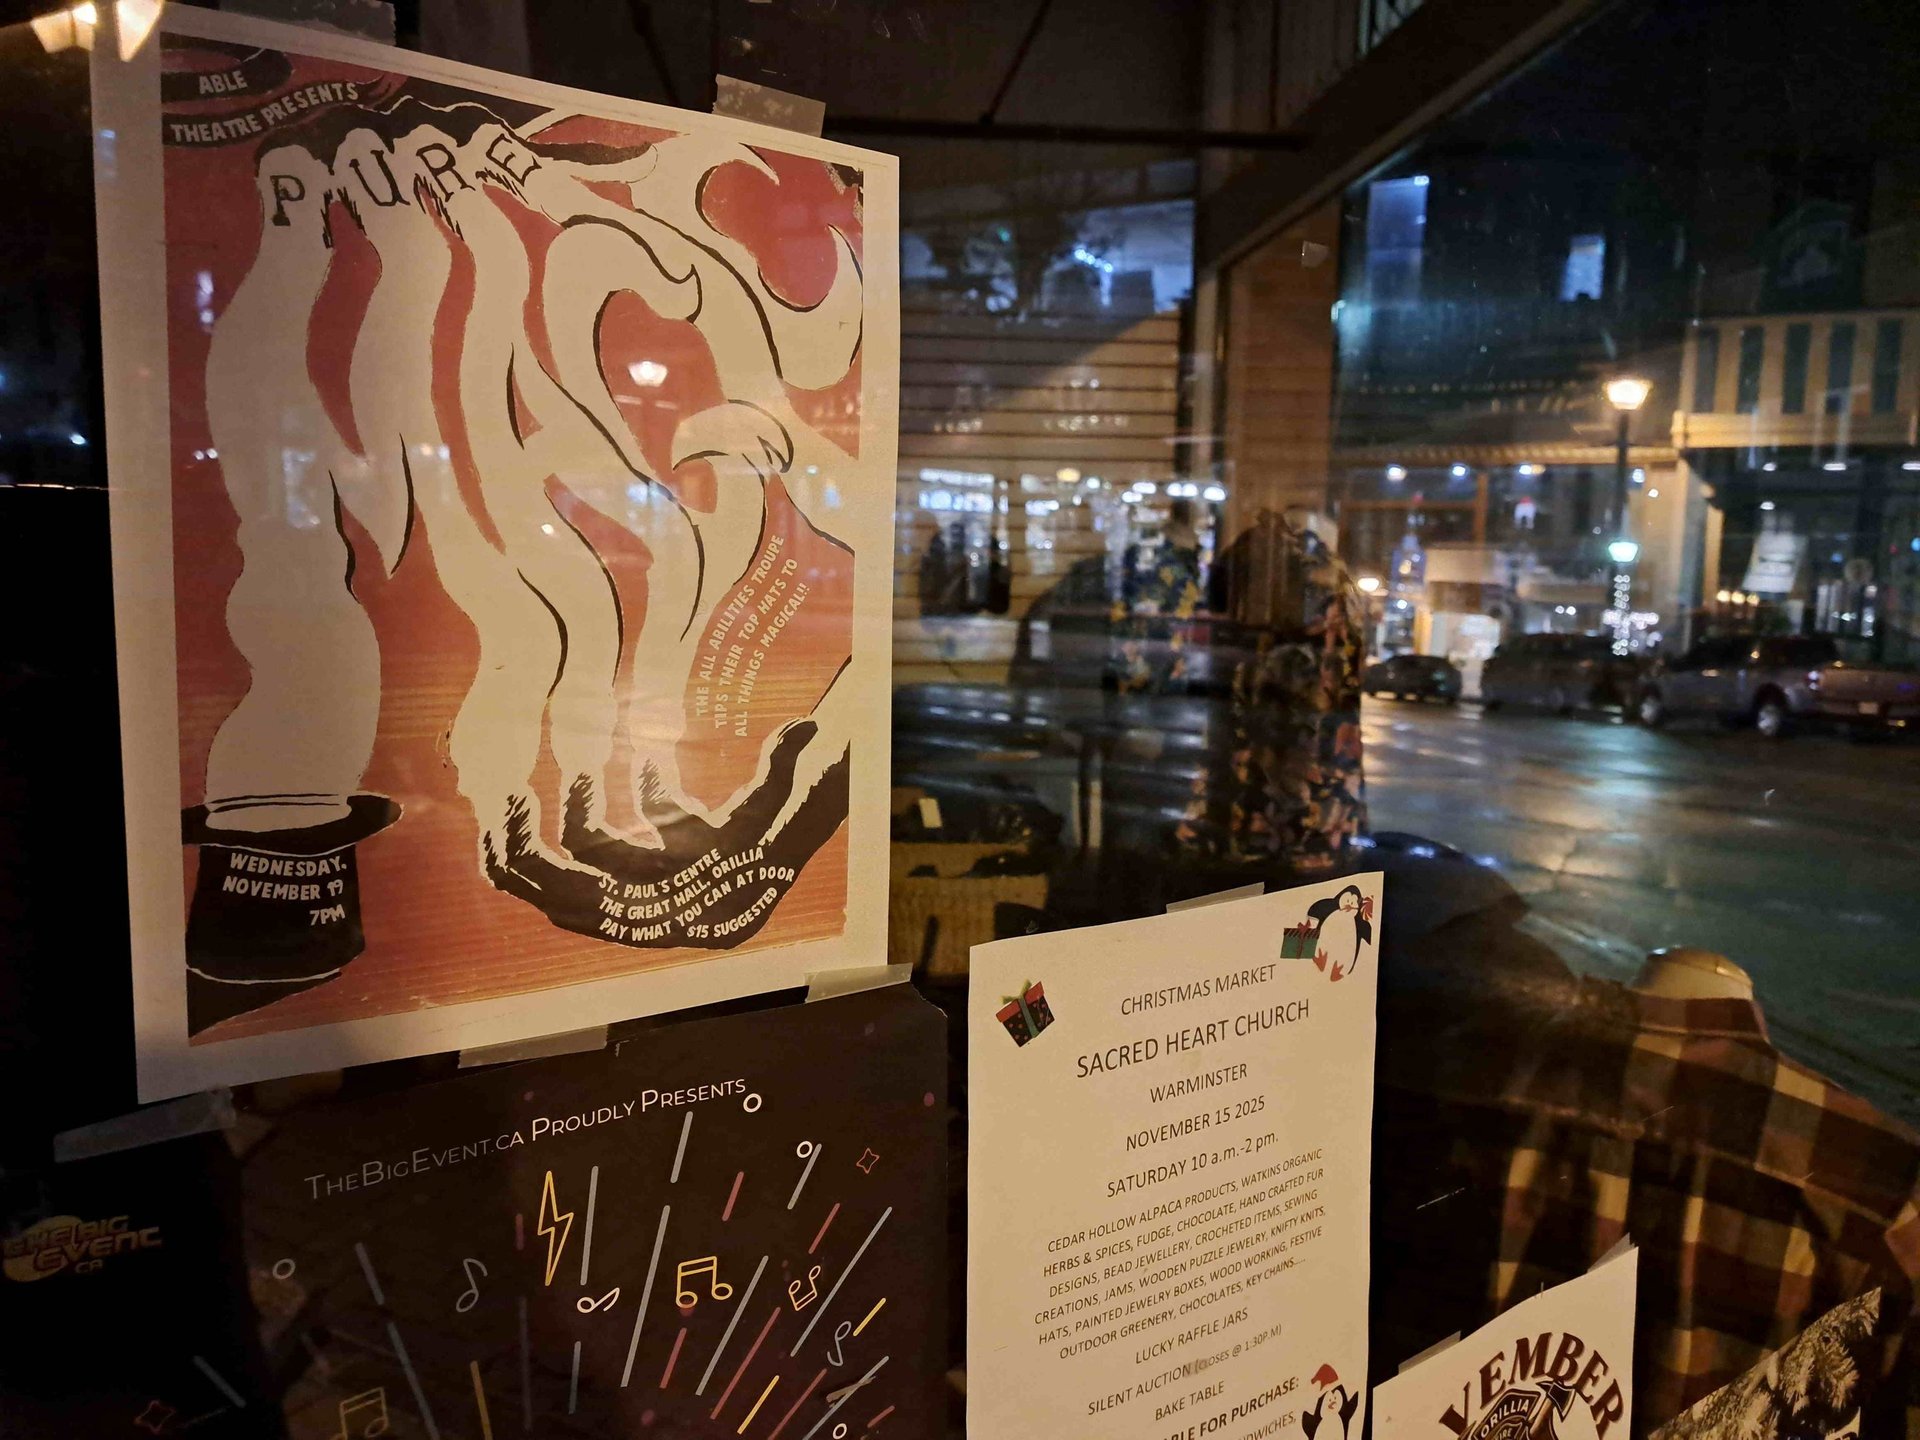 ABLE
THEATRE PRESENTS
PURE
MAGIC
THE ALL ABILITIES TROUPE
TIPS THEIR TOP HATS TO
ALL THINGS MAGICAL!!
WEDNESDAY,
NOVEMBER 19
7PM
ST. PAUL'S CENTRE
THE GREAT HALL, ORILLIA
PAY WHAT YOU CAN AT DOOR
$15 SUGGESTED
THEBIGEVENT.CA PROUDLY PRESENTS
THE BIG
EVENT
.CA
CHRISTMAS MARKET
SACRED HEART CHURCH
WARMINSTER
NOVEMBER 15 2025
SATURDAY 10 a.m.-2 pm.
CEDAR HOLLOW ALPACA PRODUCTS, WATKINS ORGANIC
HERBS & SPICES, FUDGE, CHOCOLATE, HAND CRAFTED FUR
DESIGNS, BEAD JEWELLERY, CROCHETED ITEMS, SEWING
CREATIONS, JAMS, WOODEN PUZZLE JEWELRY, KNIFTY KNITS,
HATS, PAINTED JEWELRY BOXES, WOOD WORKING, FESTIVE
OUTDOOR GREENERY, CHOCOLATES, KEY CHAINS....
LUCKY RAFFLE JARS
SILENT AUCTION (CLOSES @ 1:30P.M)
BAKE TABLE
BLE FOR PURCHASE:
DWICHES,
VEMBER
ORILLIA
FIRE